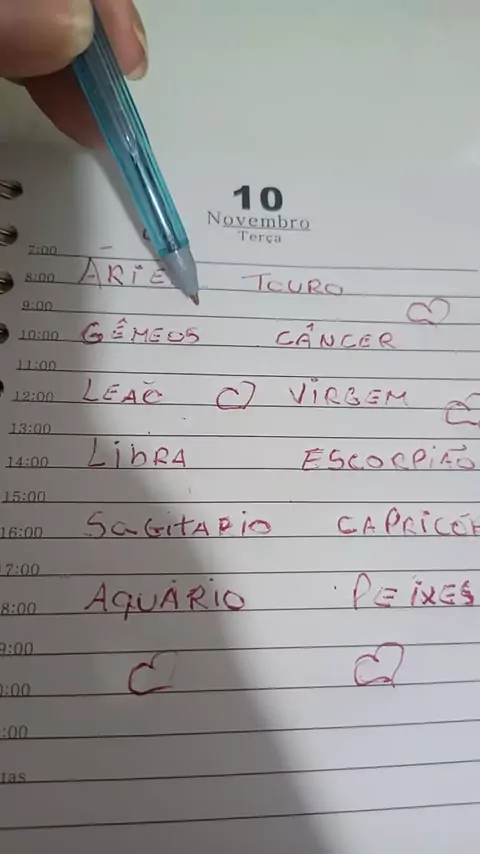 10
Novembro
Terça
7:00
8:00 ARIE TOURO
9:00
10:00 GÊMEOS CÂNCER
11:00
12:00 LEAO VIRGEM
13:00
14:00 LibRA ESCORPIÃO
15:00
16:00 SAGITARIO CAPRICÓR
17:00
8:00 AQUÁRIO PEIXES
9:00
0:00
:00
tas